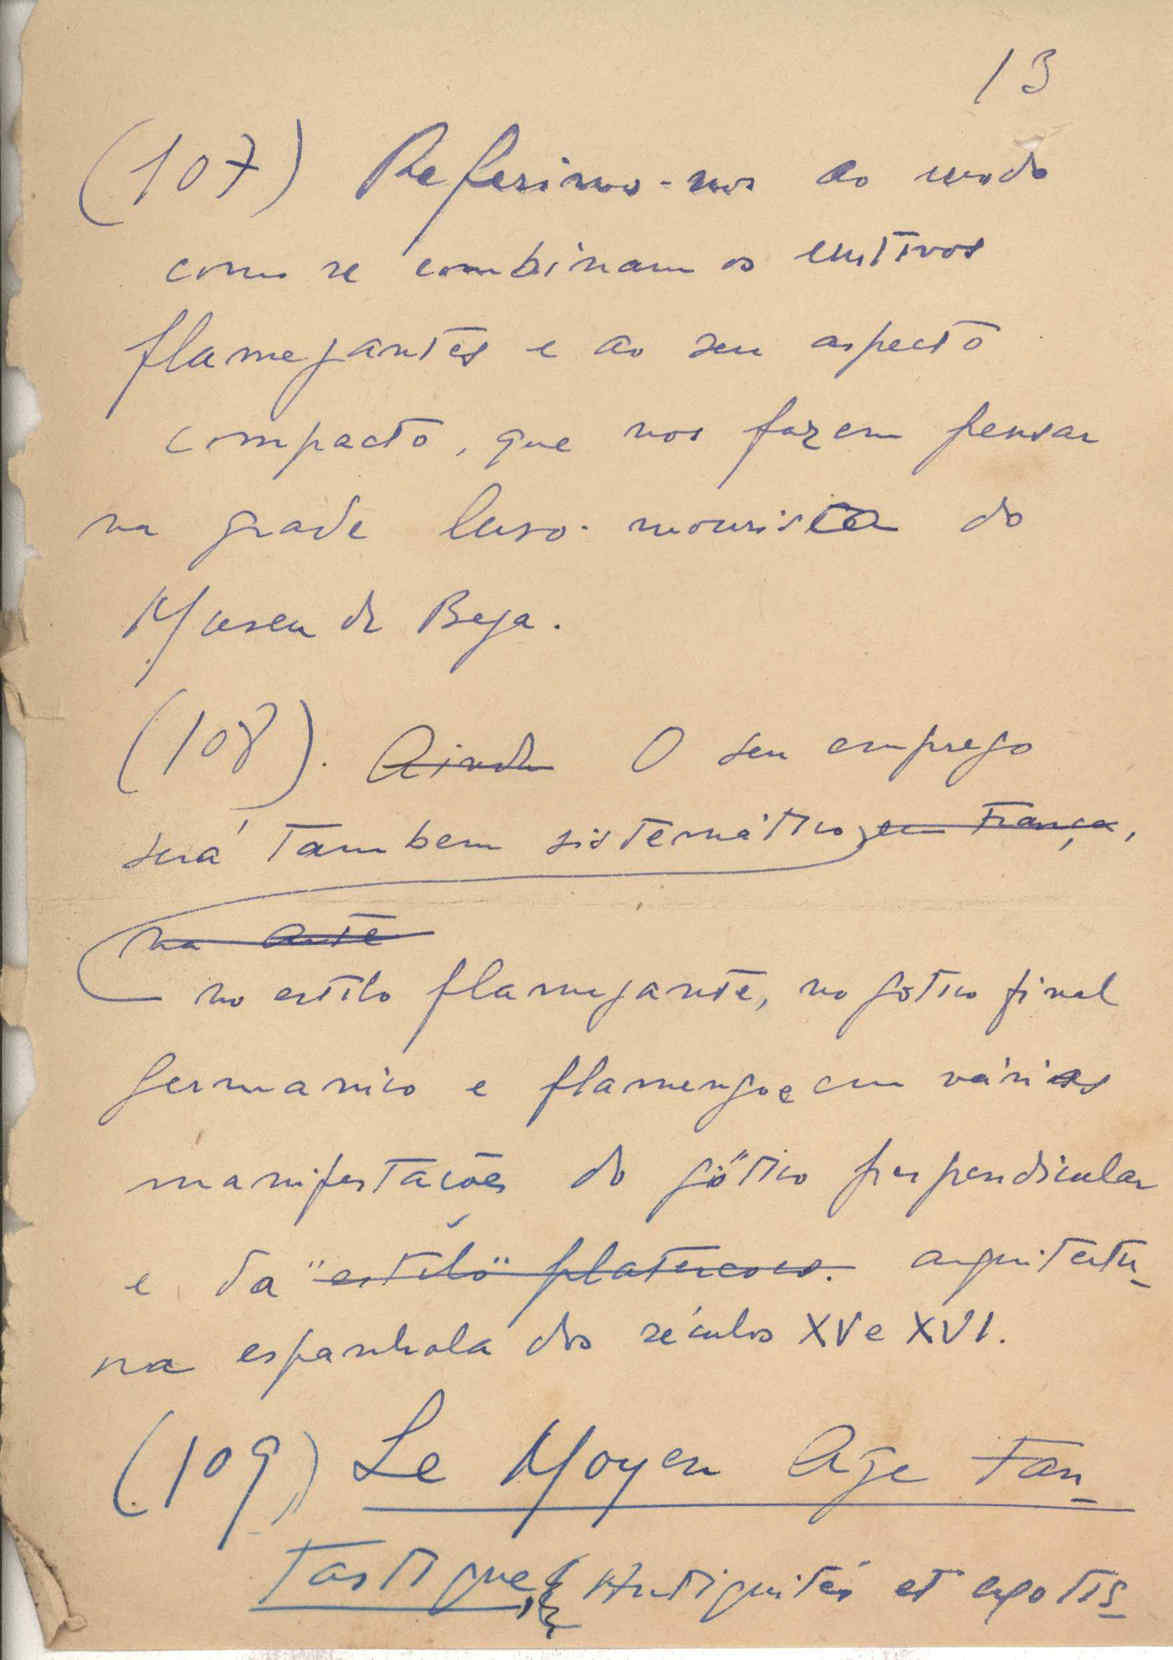 13
(107) Referimo-nos ao modo
como se combinam os motivos
flamejantes e ao seu aspecto
compacto, que nos fazem pensar
na grade luso-mourisca do
Museu de Beja.
(108). Ainda O seu emprego
será tambem sistemático, em França,
na arte
no estilo flamejante, no gótico final
germanico e flamengo e em várias
manifestações do gótico perpendicular
e da "estilo" plateresco. arquitectu-
ra espanhola dos séculos XV e XVI.
(109) Le Moyen Age Fan-
tastique, Antiquités et exotis-